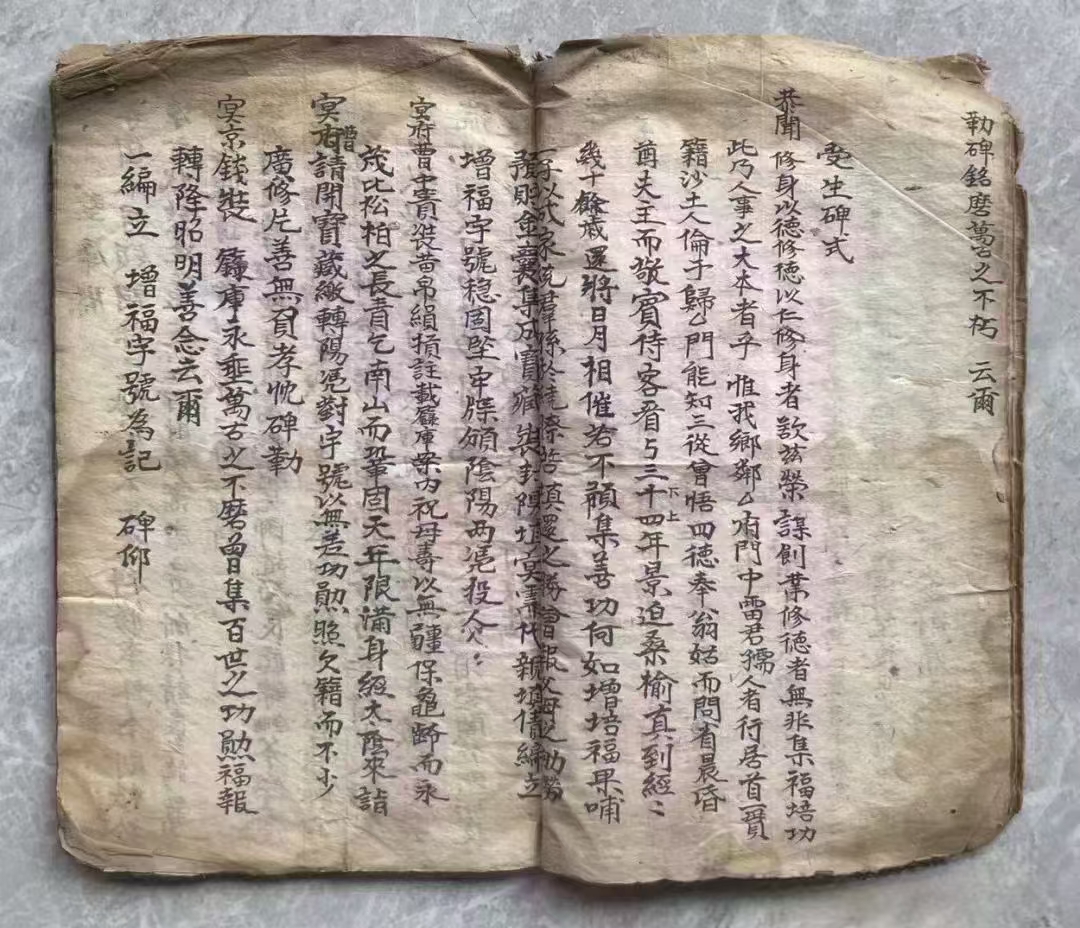 勒碑銘磨萬古之不朽 云爾
受生碑式
恭聞 修身以德修德以仁修身者欲兹榮謀創業修德者無非集福培功
此乃人事之大本者乎 惟我鄉鄰厶府門中雷君孺人者行居首賈
籍沙土人倫于歸厶門能知三從會悟四德奉翁姑而問省晨昏
酋夫王而敬賓待客看与三十四年景迫桑榆真到經〻
下上
幾十餘歲還將日月相催若不預集善功何如增培福果哺
子以成家 還之 會報父母之劬勞
預貯金囊集成寶 裝封 冥需代親填債編立
增福字號稳固坚牢牒頒陰陽两凴投人〻
冥府曹中責裝黄帛絹損註載籙庫案内祝母壽以無疆保龜齡而永
茂比松柏之長青乞南山而鞏固天年限满身經太陰來詣
冥府請開寶藏繳轉陽凴對字號以無差功勛照欠籍而不少
曹
廣修片善無負孝忱碑勒
冥京錢裝籙庫永垂萬古之不磨曾集百世之功勛福報
轉降昭明善念云爾
一編立 增福字號為記 碑仰